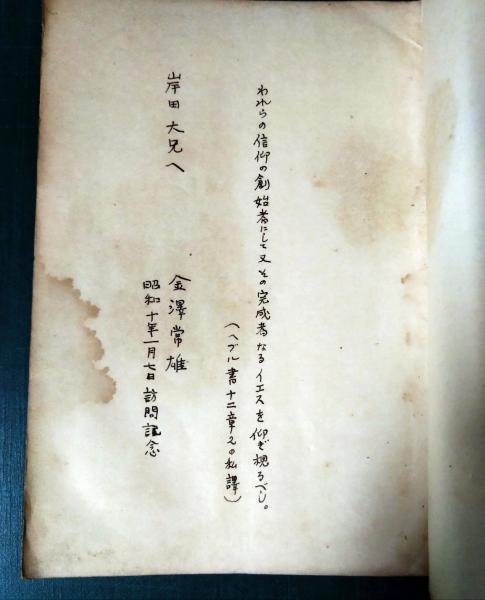 われらの信仰の創始者にして又その完成者なるイエスを仰ぎ視るべし。
(ヘブル書十二章2の私譯)
岸田大兄へ
金澤常雄
昭和十年一月七日訪問記念